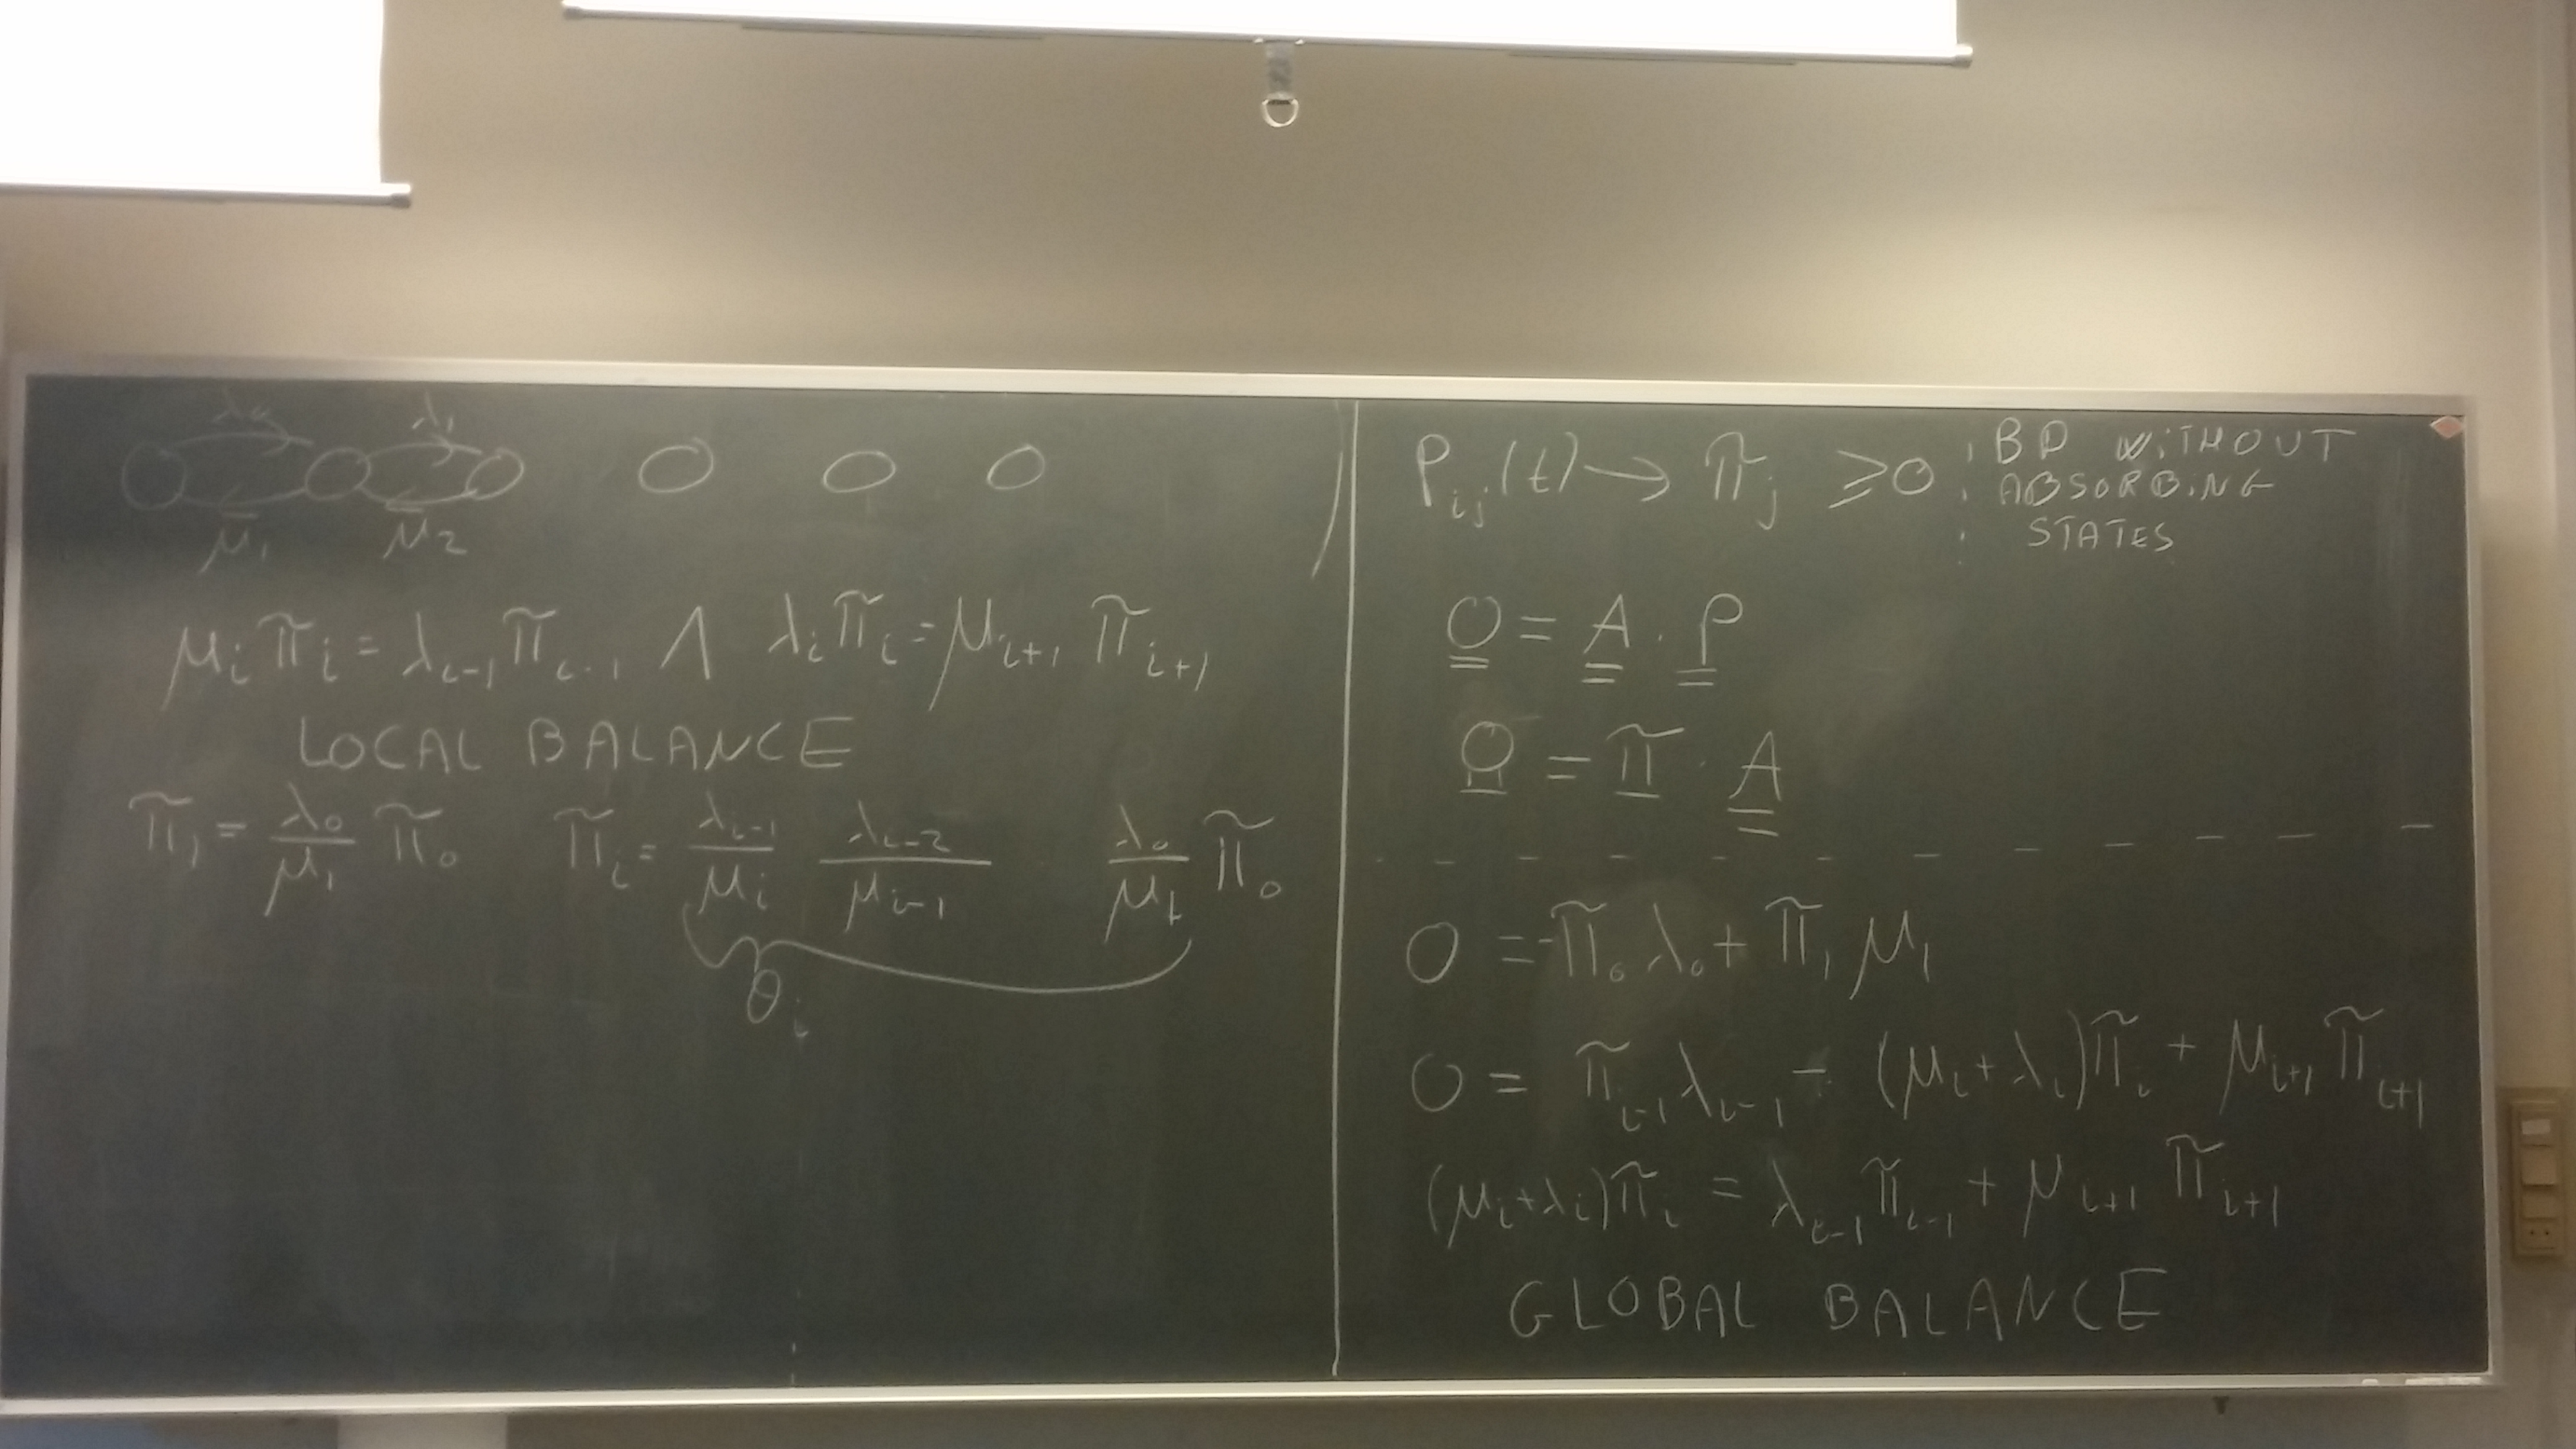 λ₀ λ₁
μ₁ μ₂
μᵢ πᵢ = λᵢ₋₁ πᵢ₋₁ ∧ λᵢ πᵢ = μᵢ₊₁ πᵢ₊₁
LOCAL BALANCE
π₁ = λ₀/μ₁ π₀ πᵢ = λᵢ₋₁/μᵢ λᵢ₋₂/μᵢ₋₁ λ₀/μ₁ π₀
θᵢ
Pᵢⱼ(t) → πⱼ ≥ 0
BD WITHOUT
ABSORBING
STATES
0 = A · P
0 = π · A
0 = -π₀ λ₀ + π₁ μ₁
0 = πᵢ₋₁ λᵢ₋₁ - (μᵢ + λᵢ)πᵢ + μᵢ₊₁ πᵢ₊₁
(μᵢ + λᵢ)πᵢ = λᵢ₋₁ πᵢ₋₁ + μᵢ₊₁ πᵢ₊₁
GLOBAL BALANCE